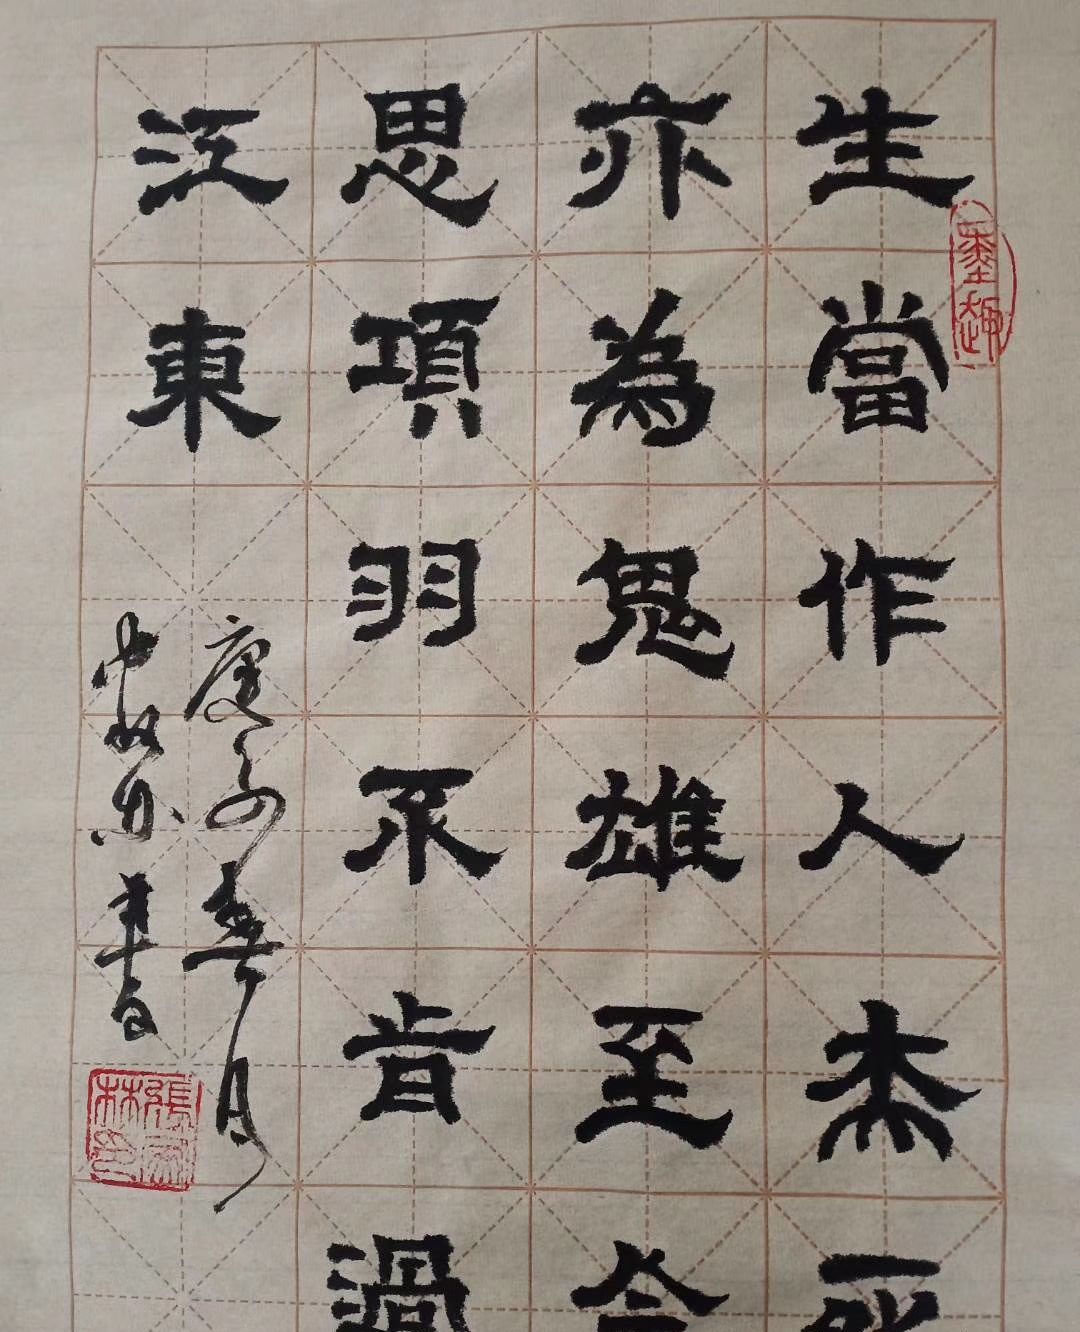 生當作人杰死
亦為鬼雄至今
思項羽不肯過
江東
庚子春月
書
墨趣